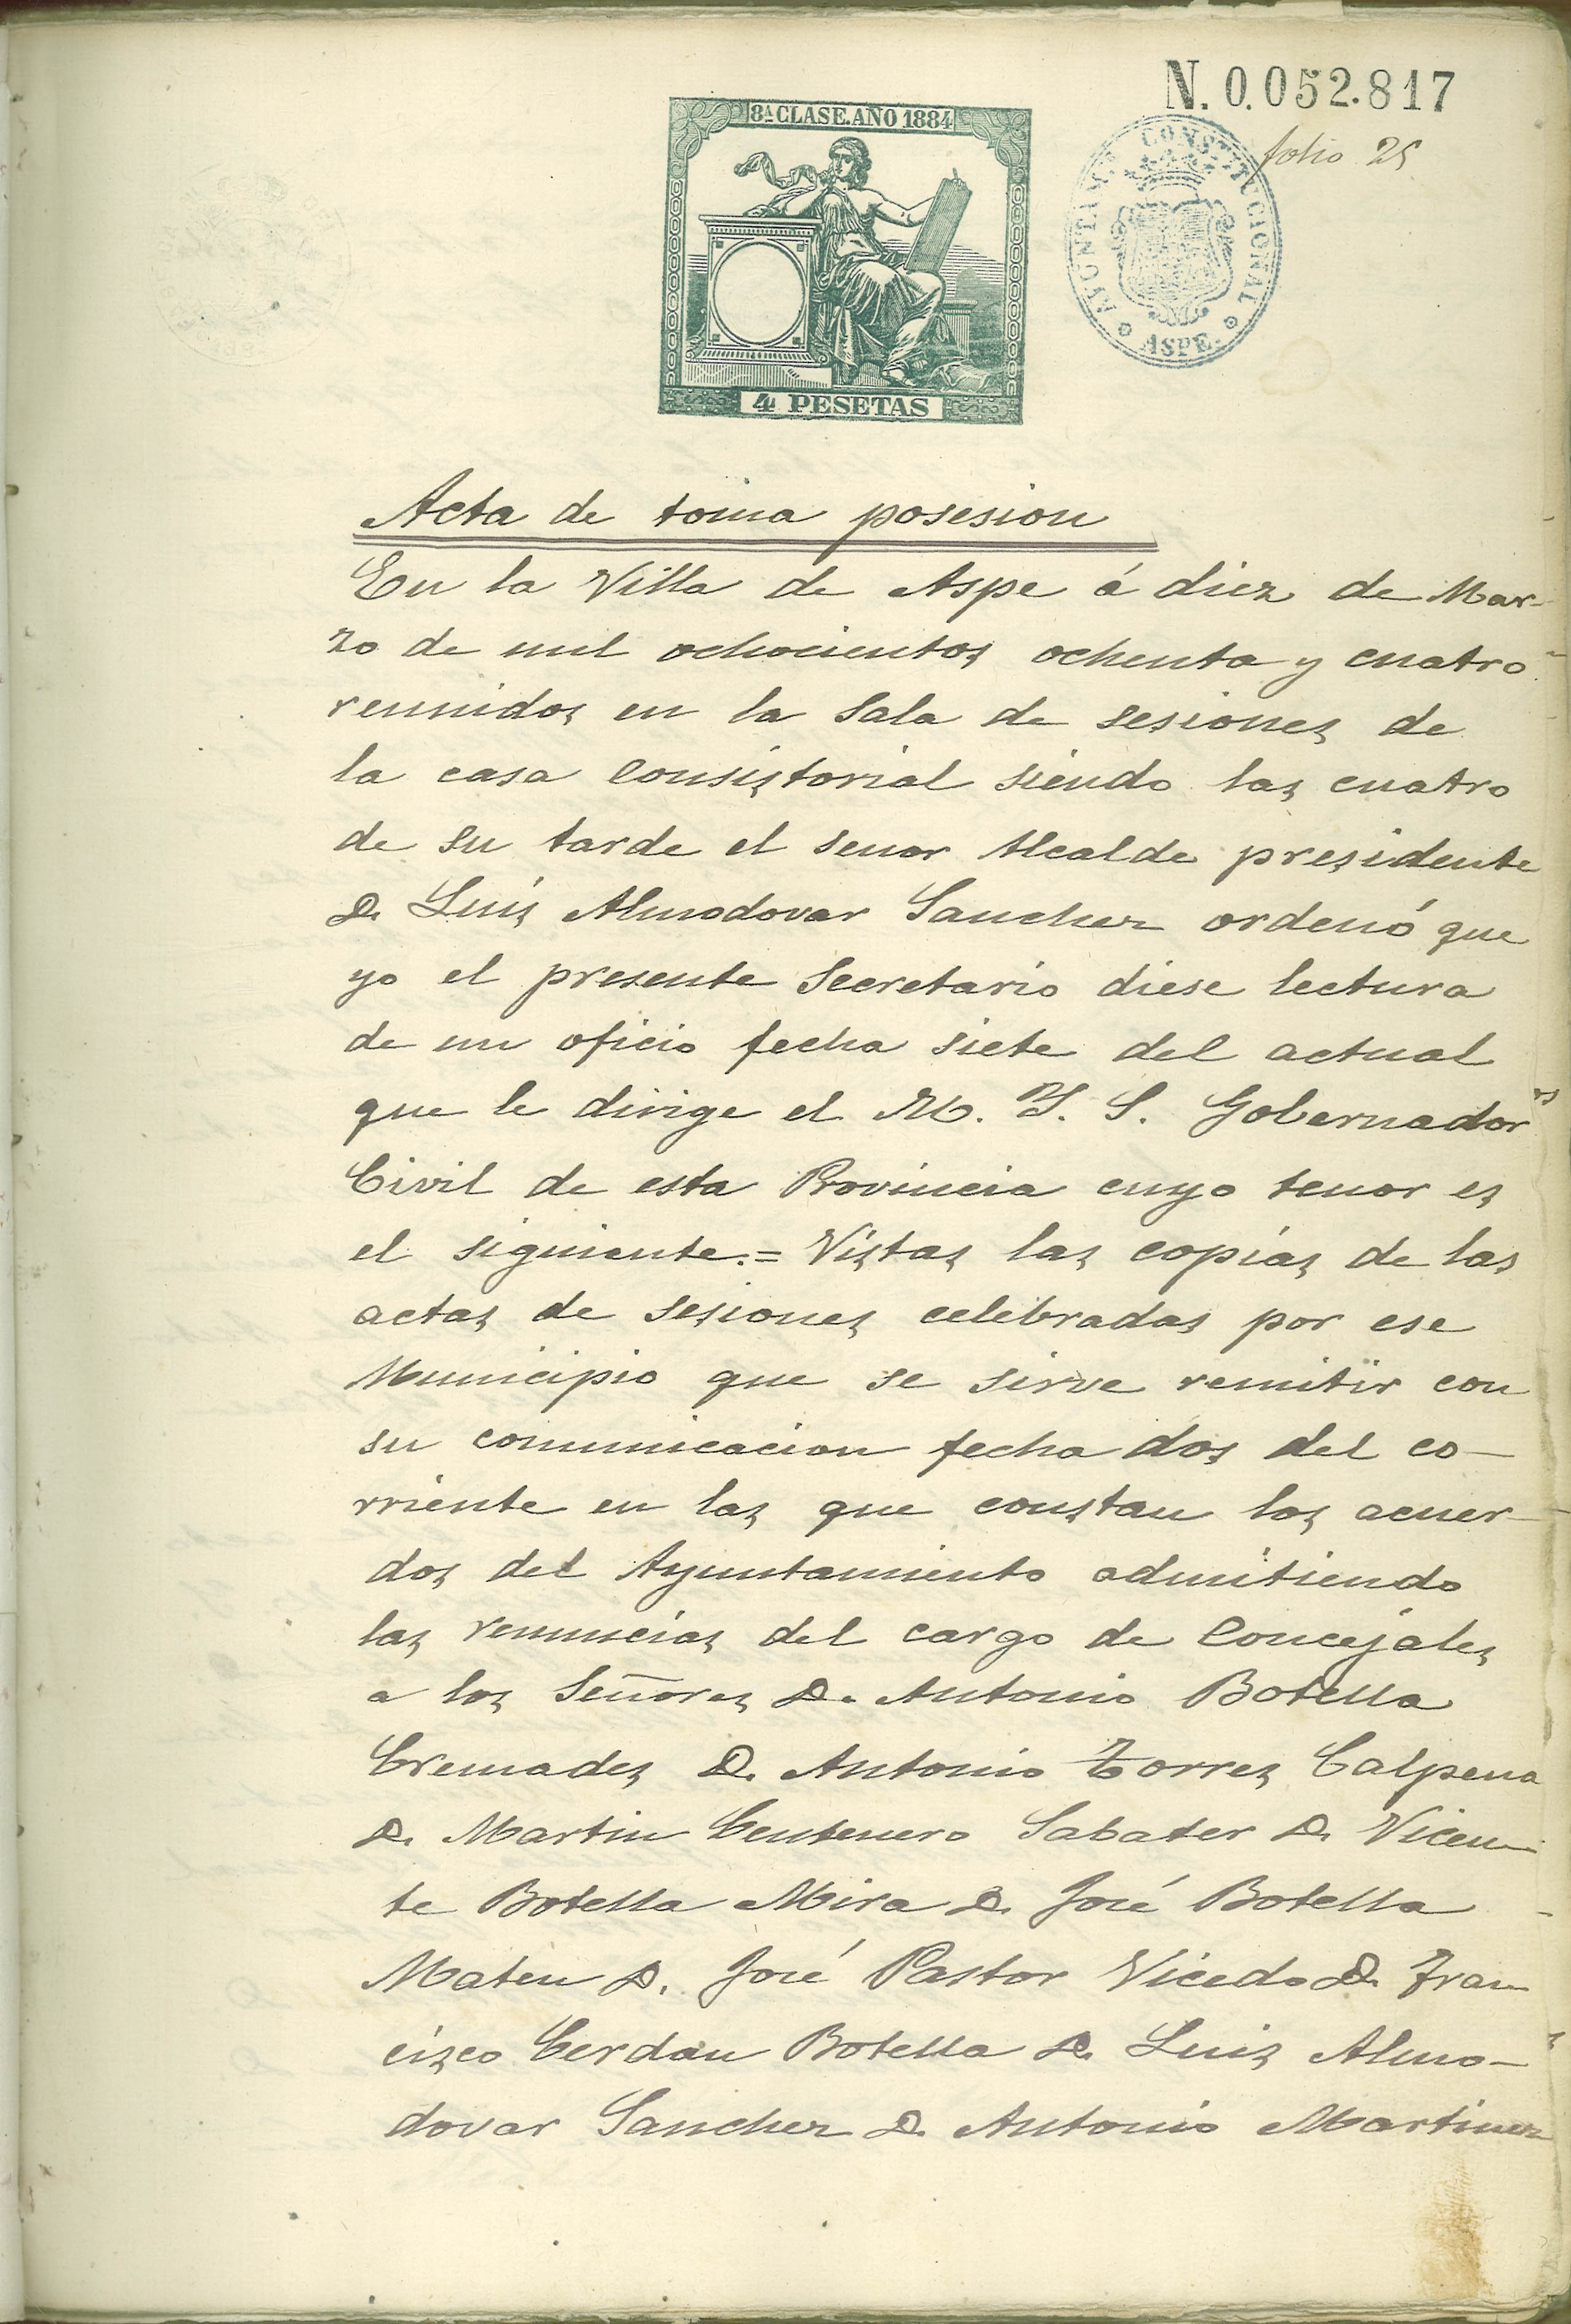 N. 0.052.817
8ª CLASE. AÑO 1884
folio 25
AYUNTAMTO CONSTITUCIONAL
ASPE.
4 PESETAS
Acta de toma posesion
En la Villa de Aspe á diez de Mar-
zo de mil ochocientos ochenta y cuatro
reunidos en la Sala de sesiones de
la casa Consistorial siendo las cuatro
de su tarde el senor Alcalde presidente
D. Luis Almodovar Sanchez ordenó que
yo el presente Secretario diese lectura
de un oficio fecha siete del actual
que le dirige el M. Y. S. Gobernador
Civil de esta Provincia cuyo tenor es
el siguiente.= Vistas las copias de las
actas de sesiones celebradas por ese
Municipio que se sirve remitir con
su comunicacion fecha dos del co-
rriente en las que constan los acuer-
dos del Ayuntamiento admitiendo
las renuncias del cargo de Concejales
a los Señores D. Antonio Botella
Cremades D. Antonio Torres Calpena
D. Martin Centenero Sabater D. Vicen-
te Botella Mira D. José Botella
Mateu D. José Pastor Vicedo D. Fran-
cisco Cerdan Botella D. Luis Almo-
dovar Sanchez D. Antonio Martinez